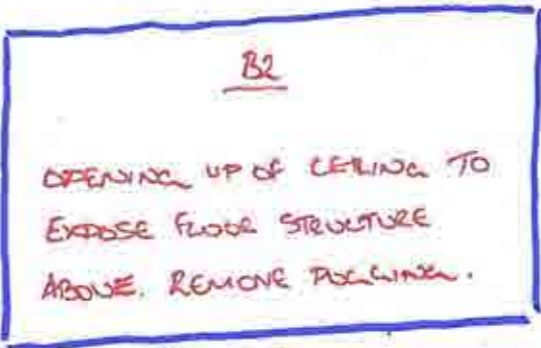 B2
OPENING UP OF CEILING TO
EXPOSE FLOOR STRUCTURE
ABOVE. REMOVE PUGGING.